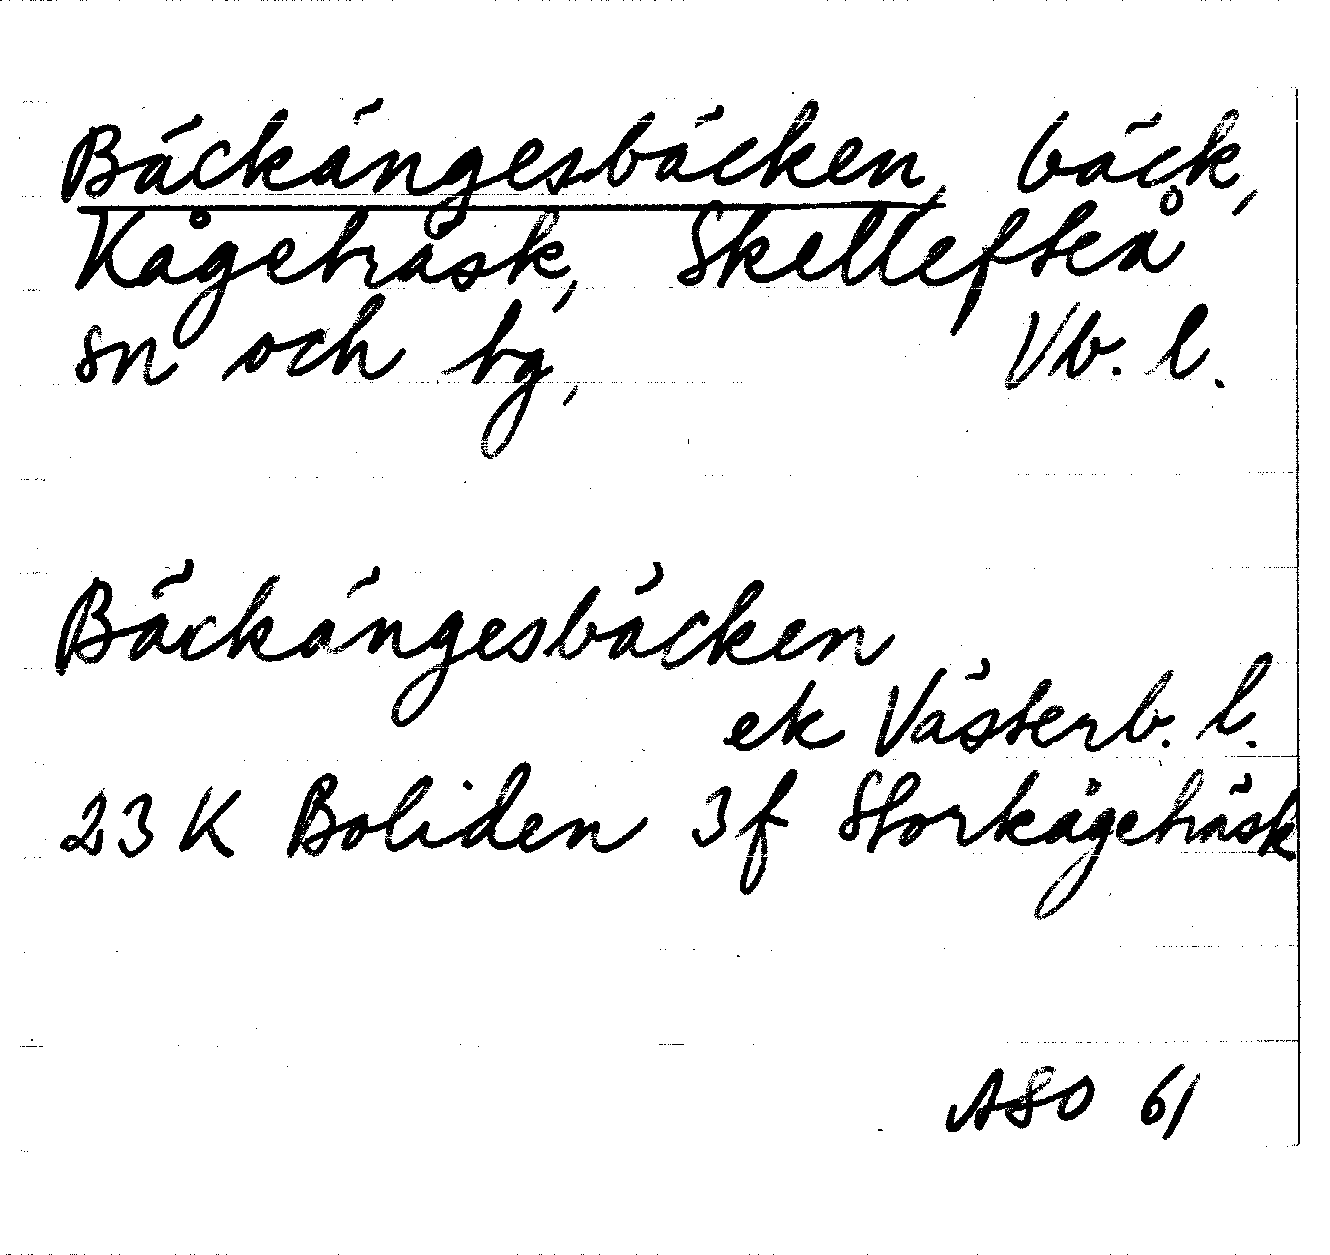 Bäckängesbäcken, bäck,
Kågeträsk, Skellefteå
sn och tg, Vb. l.
Bäckängesbäcken
ek Västerb. l.
23 K Boliden 3f Storkågeträsk
ASO 61